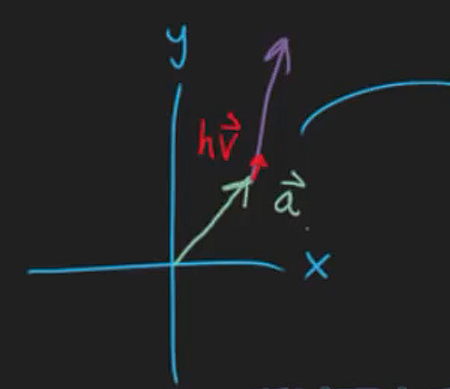 y
hv⃗
a⃗
x